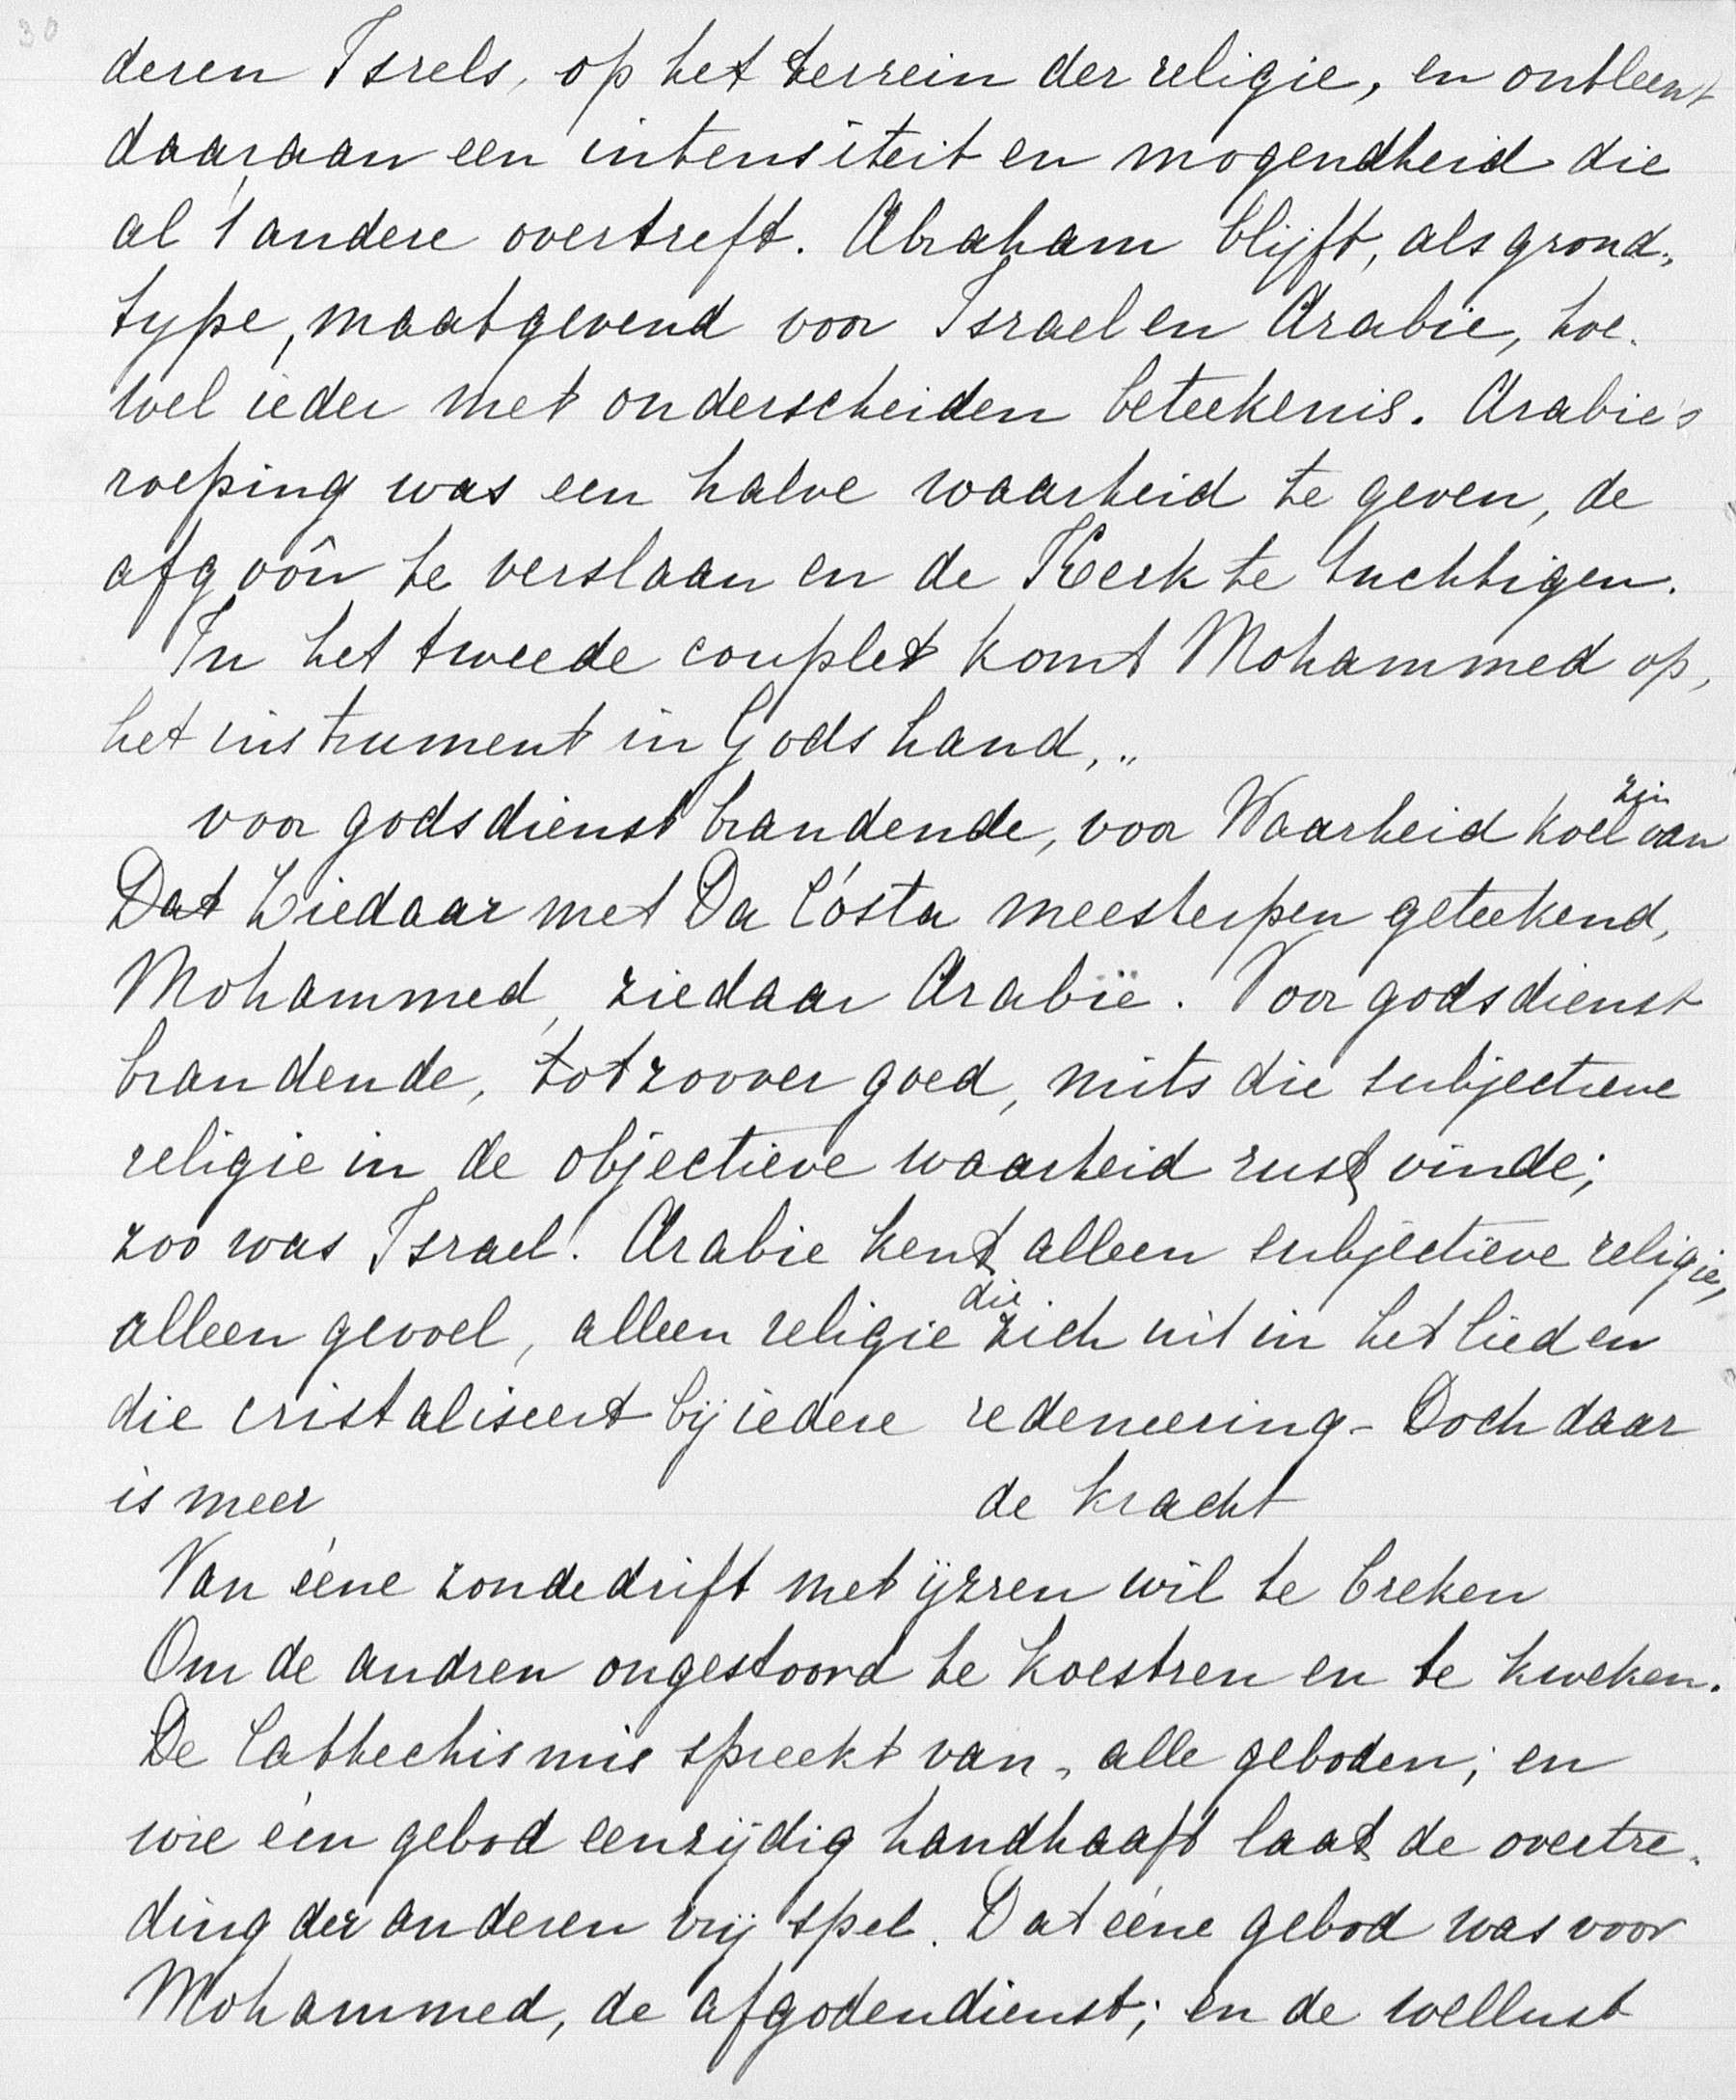 30
deren Isrels, op het terrein der religie, en ontleent
daaraan een intensiteit en mogendheid die
al 't andere overtreft. Abraham blijft, als grond-
type, maatgevend voor Israel en Arabie, hoe-
wel ieder met onderscheiden beteekenis. Arabie's
roeping was een halve waarheid te geven, de
afgoôn te verslaan en de Kerk te tuchtigen.
In het tweede couplet komt Mohammed op,
het instrument in Gods hand, "
voor godsdienst brandende, voor Waarheid koel van zin
Dat Ziedaar met Da Costa meesterpen geteekend,
Mohammed, ziedaar Arabië. Voor godsdienst
brandende, tot zoover goed, mits die subjectieve
religie in de objectieve waarheid rust vinde;
zoo was Israel! Arabie kent alleen subjectieve religie,
alleen gevoel, alleen religie die zich uit in het lied en
die cristaliseert bij iedere redeneering - Doch daar
is meer de kracht
Van ééne zondedrift met ijzren wil te breken
Om de andren ongestoord te koestren en te kweken.
De Cathechismis spreekt van „ alle geboden; en
wie één gebod eenzijdig handhaaft laat de overtre-
ding der anderen vrij spel. Dat ééne gebod was voor
Mohammed, de afgodendienst; en de wellust